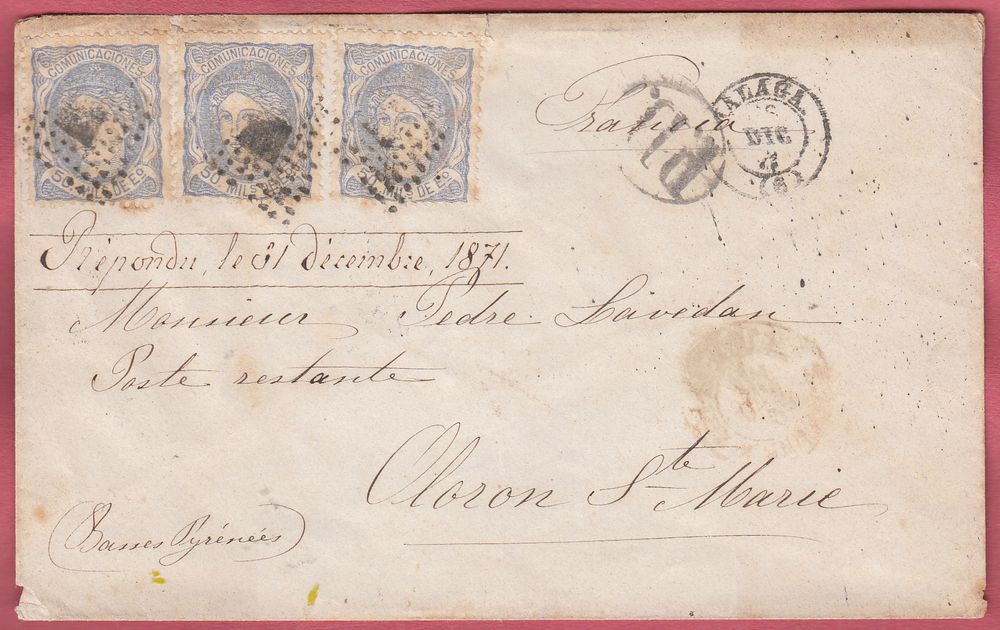 COMUNICACIONES COMUNICACIONES COMUNICACIONES
50 MILS DE Eº 50 MILS DE Eº 50 MILS DE Eº
Francia
P.D.
MALAGA
DIC
Répondu, le 31 décembre, 1871.
Monsieur Pedre Lavedan
Poste restante
Oloron Ste Marie
(Basses Pyrénées)